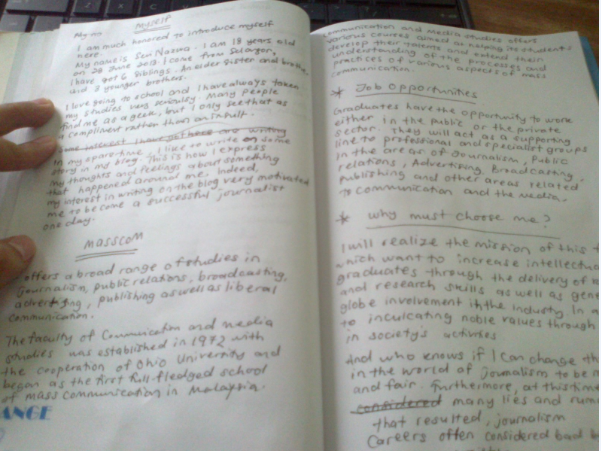 MYSELF
I am much honored to introduce myself
here.
My name is Seri Nazura. I am 18 years old
on 28 June 2013. I come from Selangor,
I have got 6 siblings. An elder sister and brother,
and 3 younger brothers.
I love going to school and I have always taken
my studies very seriously. Many people
find me as a geek, but I only see that as
a compliment rather than an insult.
In my spare time, I like to write some
story in my blog. This is how I express
my thoughts and feelings about something
that happened around me. Indeed,
my interest in writing on the blog very motivated
me to become a successful journalist
one day.
MASSCOM
- offers a broad range of studies in
journalism, public relations, broadcasting,
advertising, publishing as well as liberal
communication.
The faculty of Communication and media
studies was established in 1972 with
the cooperation of Ohio University and
began as the first full-fledged school
of mass communication in Malaysia.
ANGE
Communication and Media studies offers
various courses aimed at helping its students
develop their talents and extend their
understanding of the processes and
practises of various aspects of mass
communication.
* Job Opportunities
Graduates have the opportunity to work
either in the public or the private
sector. They will act as a supporting
line to professional and specialist groups
in the areas of Journalism, Public
relations, Advertising, Broadcasting,
Publishing and other areas related
to communication and the media.
* Why must choose me?
I will realize the mission of this
which want to increase intellectual
graduates through the delivery of
and research skills as well as
globe involvement in the industry in
to inculcating noble values through
in society's activities
And who knows if I can change the
in the world of journalism to be
and fair. Furthermore, at this time
considered many lies and
that resulted, journalism
careers often considered bad